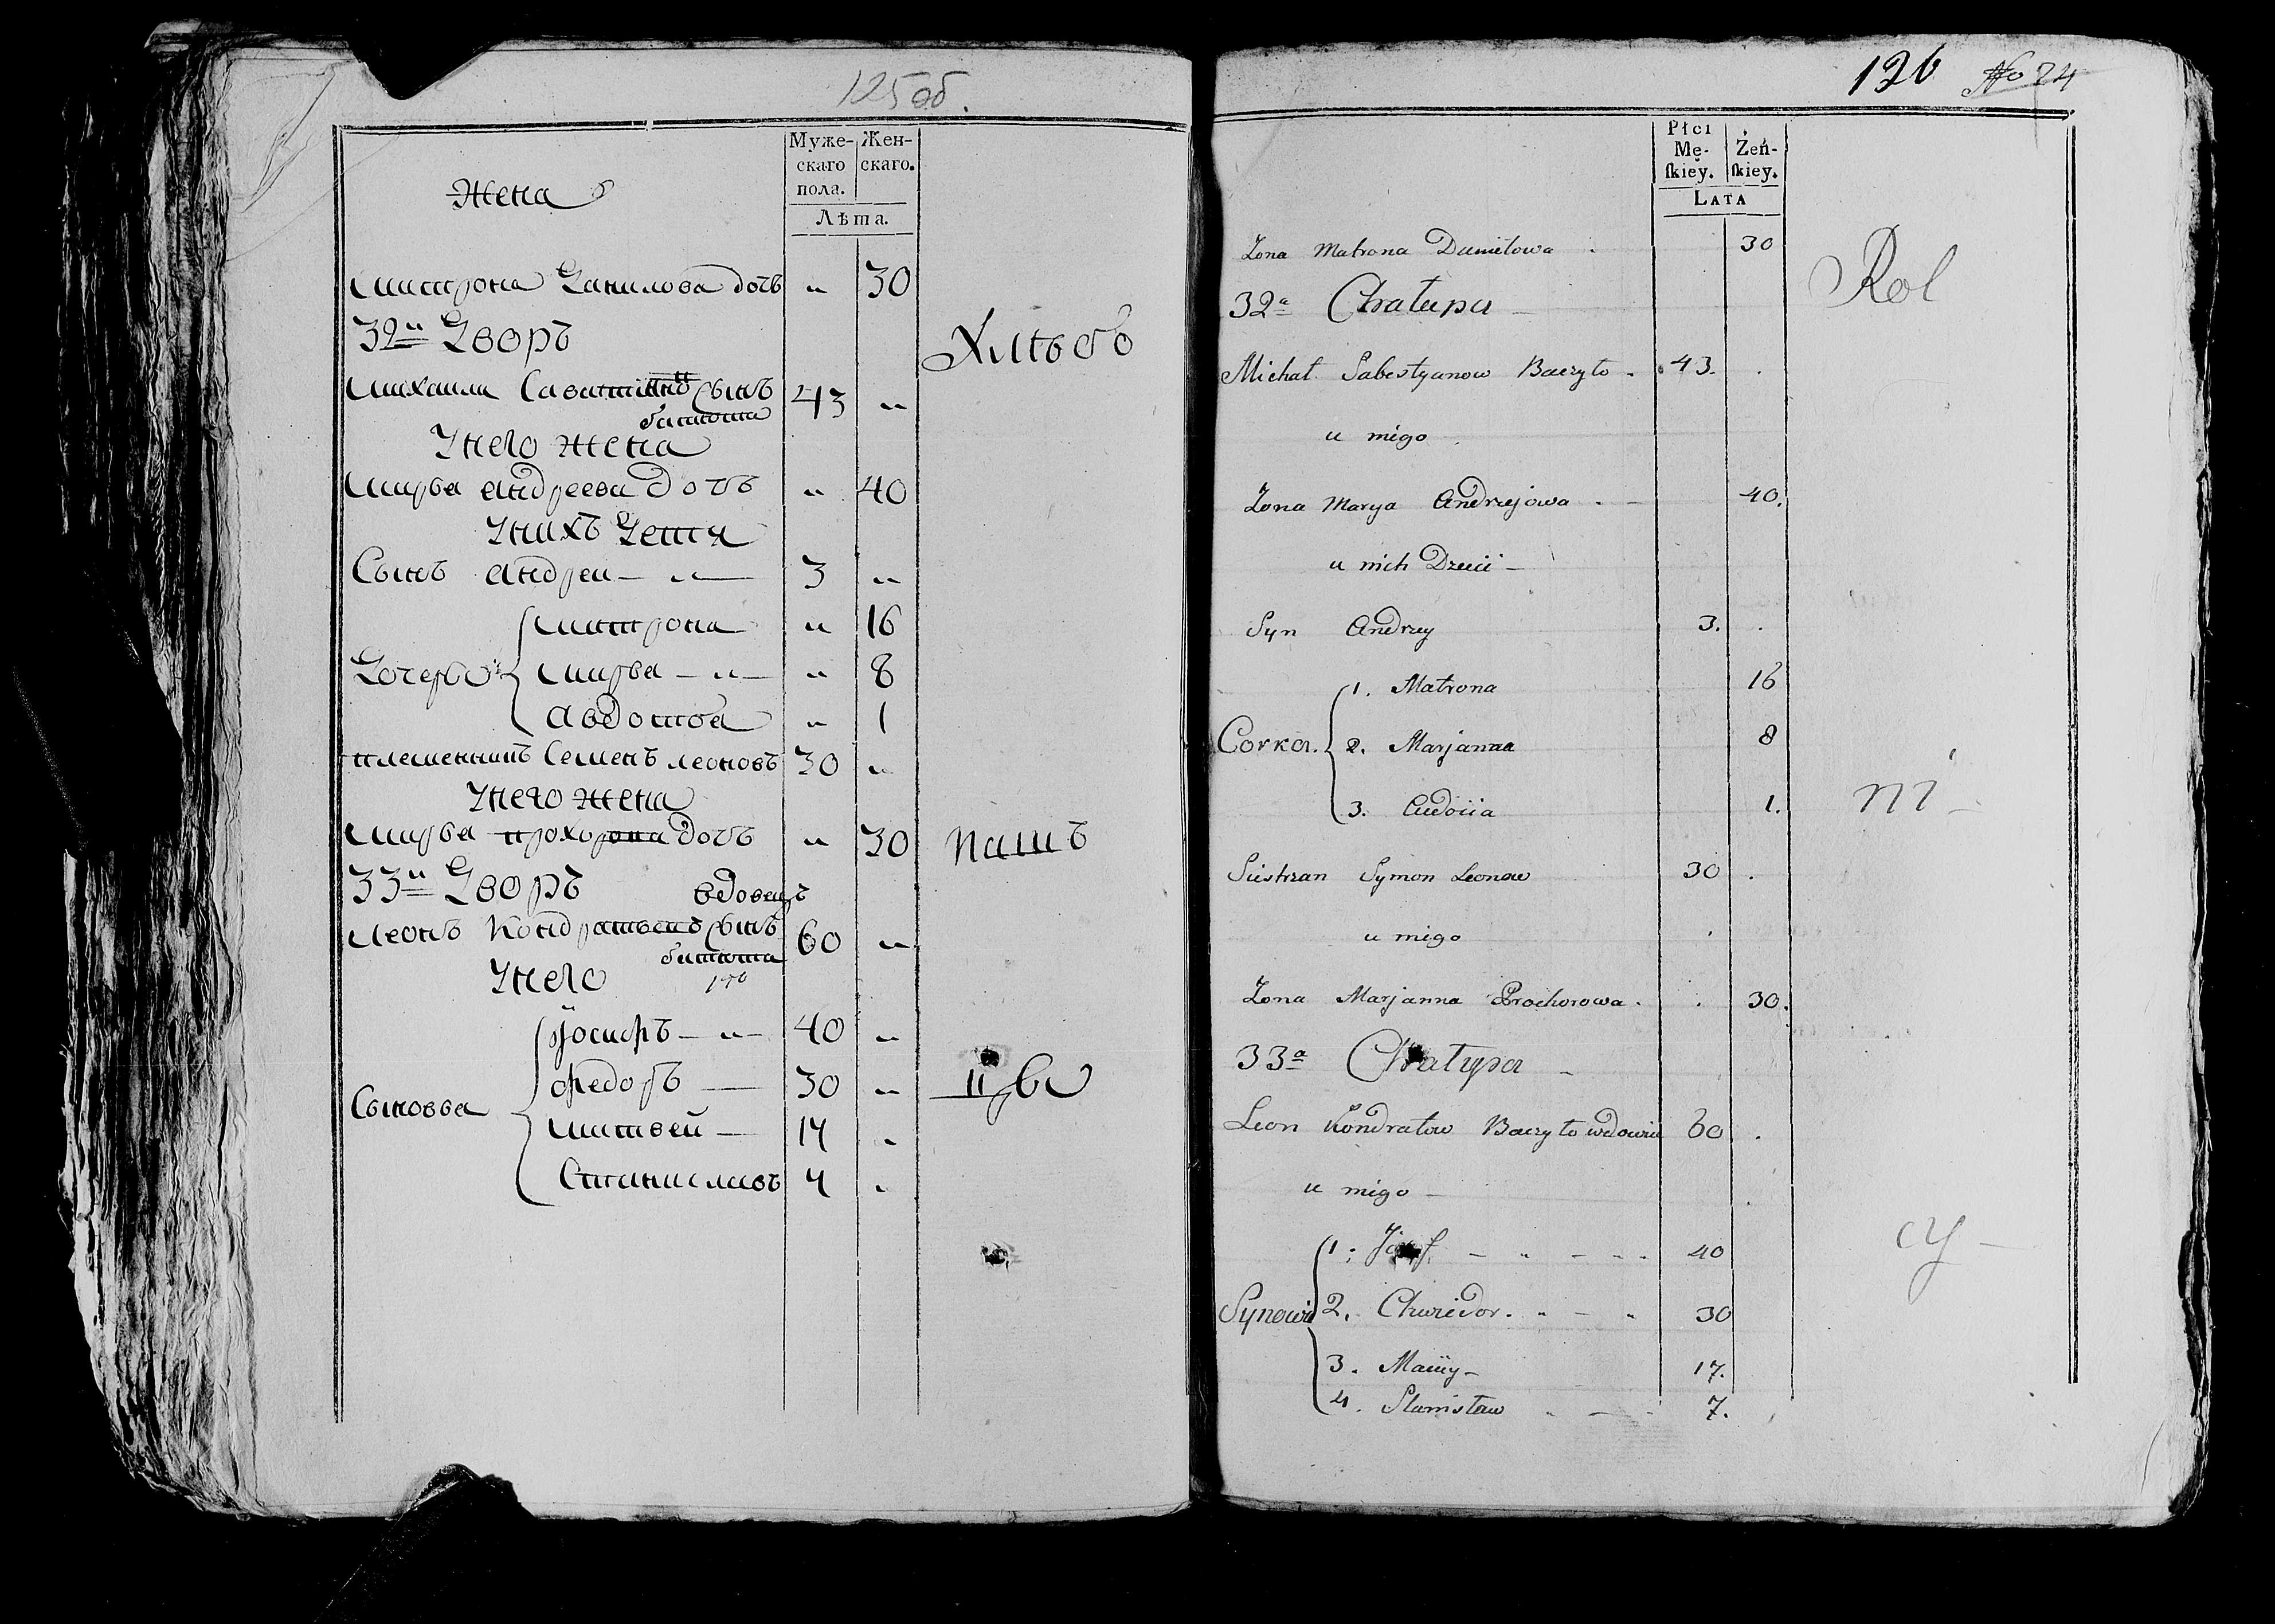 125об.
Муже-
скаго
пола.
Жен-
скаго.
Лѣта.
Жена
Матрона Данилова дочь " 30
32й Дворъ
Хлѣбо
Михаила сынъ 43 "
У него жена
Марья Андреева дочь " 40
У нихъ Дети
Сынъ Андреи — " — 3 "
Матрона " 16
Дочерьи Марья — " — " 8
Авдотья " 1
племенникъ Семенъ Леоновъ 30 "
У него жена
Марья дочь " 30
пашъ
33й Дворъ вдовецъ
Леонъ Кондратьевъ сынъ 60 "
У него
Йосифъ — " — 40 "
федоръ — 30 "
цы
Сыновья
Матвей — 17 "
Станиславъ 7 "
126 No 24
Płci
Mę-
skiey.
Żeń-
skiey.
LATA
Zona Matrona Daniełowa . 30
Rol
32a Chałupa
Michał Sabestyanow Baczyło . 43. .
u niego
Zona Marya Andrzejowa . 40.
u nich Dzieci
Syn Andrzy 3. .
1. Matrona 16
Corka. 2. Marjanna 8
3. Audocia 1.
ni
Siestrzan Symon Leonow 30 .
u niego
Zona Marjanna Prochorowa . . 30.
33a Chałupa
Leon Kondratow Baczyło wdowiec 60 .
u niego
1. Józef 40
cy
Synowie 2. Chwiedor. 30
3. Maciey 17.
4. Stanisław 7.